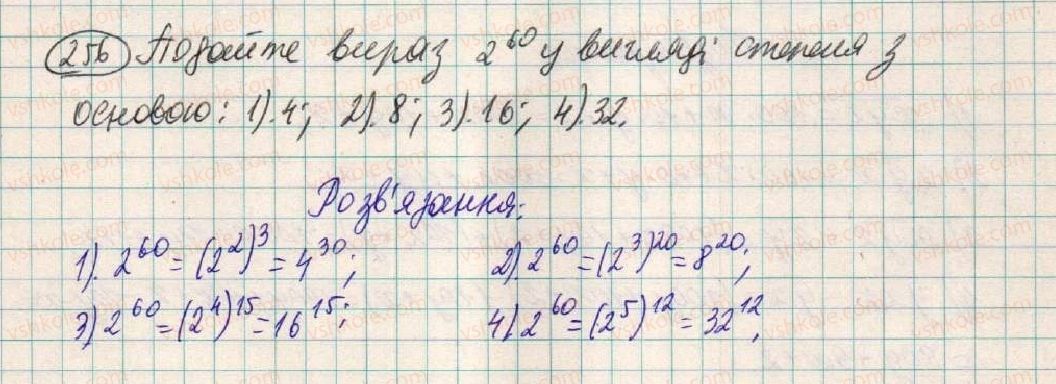 256 Подайте вираз 2^60 у вигляді степеня з
основою: 1). 4; 2). 8; 3). 16; 4). 32.
Розв'язання:
1). 2^60 = (2^2)^3 = 4^30; 2). 2^60 = (2^3)^20 = 8^20;
3) 2^60 = (2^4)^15 = 16^15; 4) 2^60 = (2^5)^12 = 32^12,